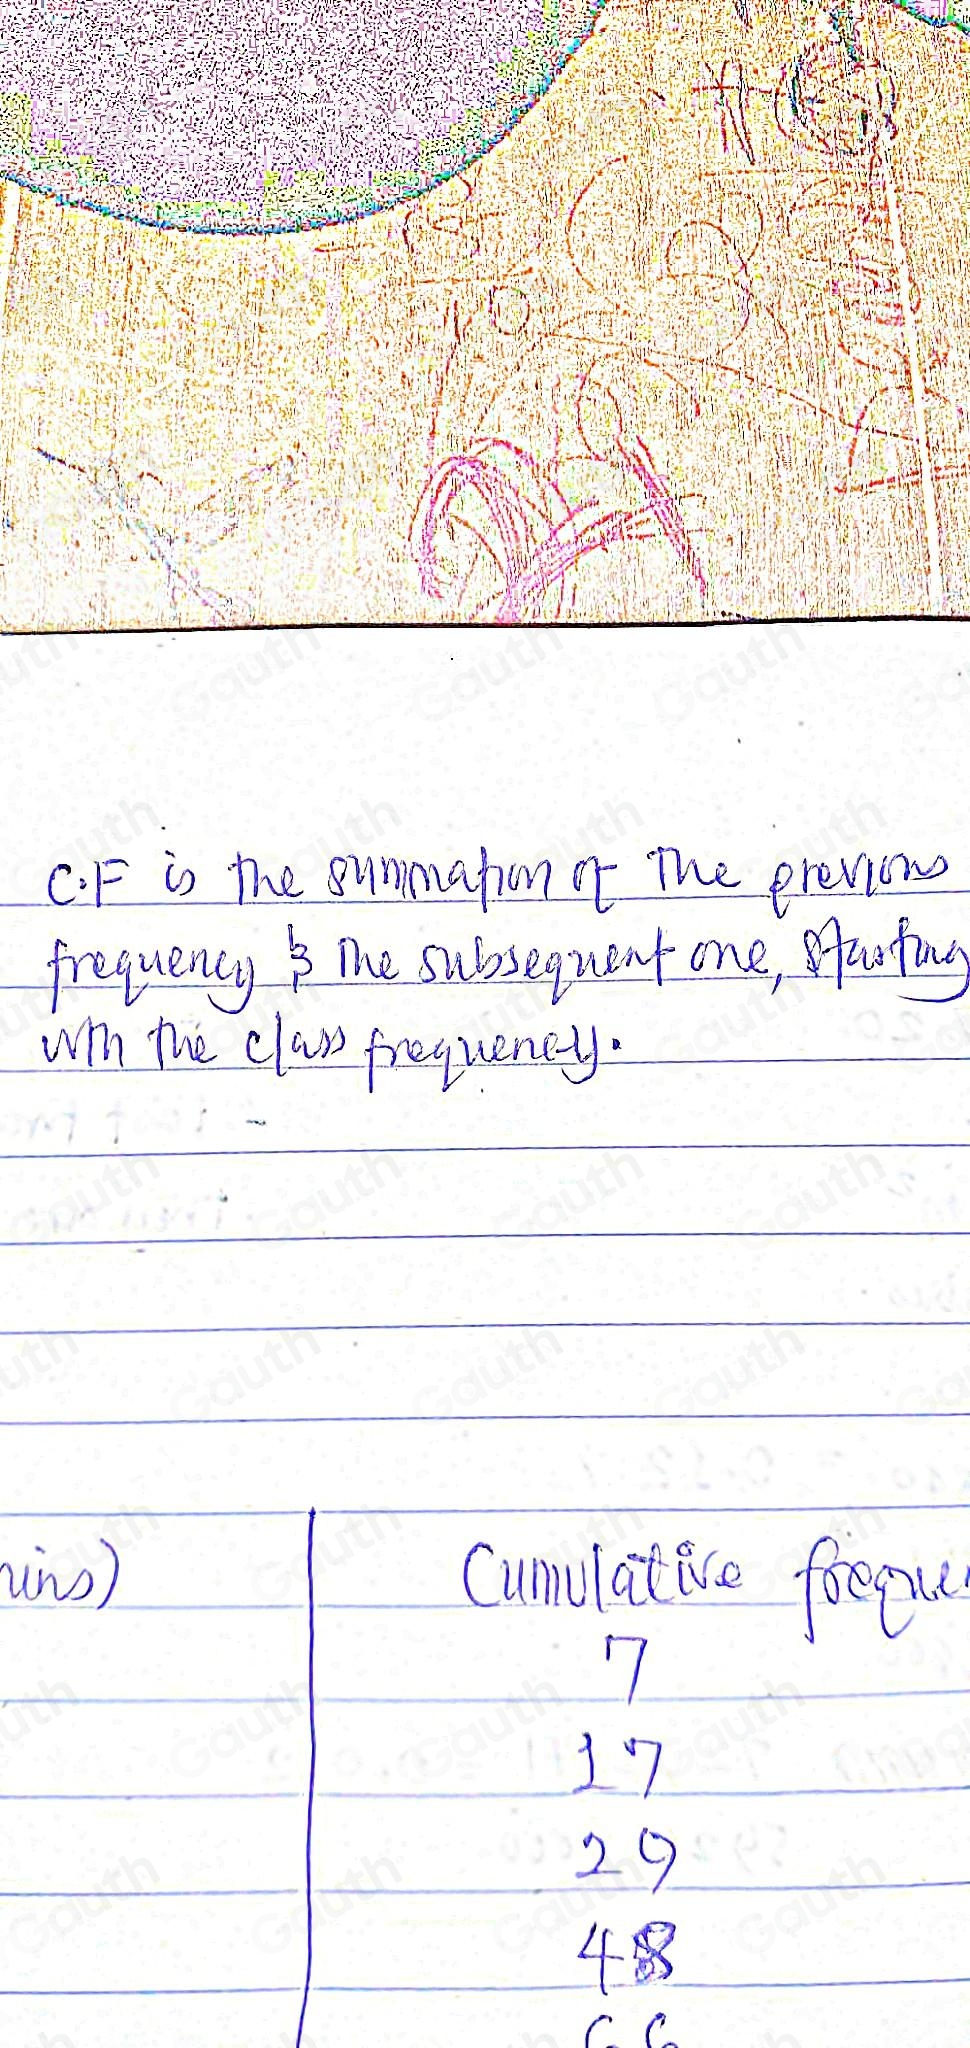 C.F is the summation of the previous
frequency & the subsequent one, starting
with the class frequency.
mins)
Cumulative freque
7
17
29
48
66